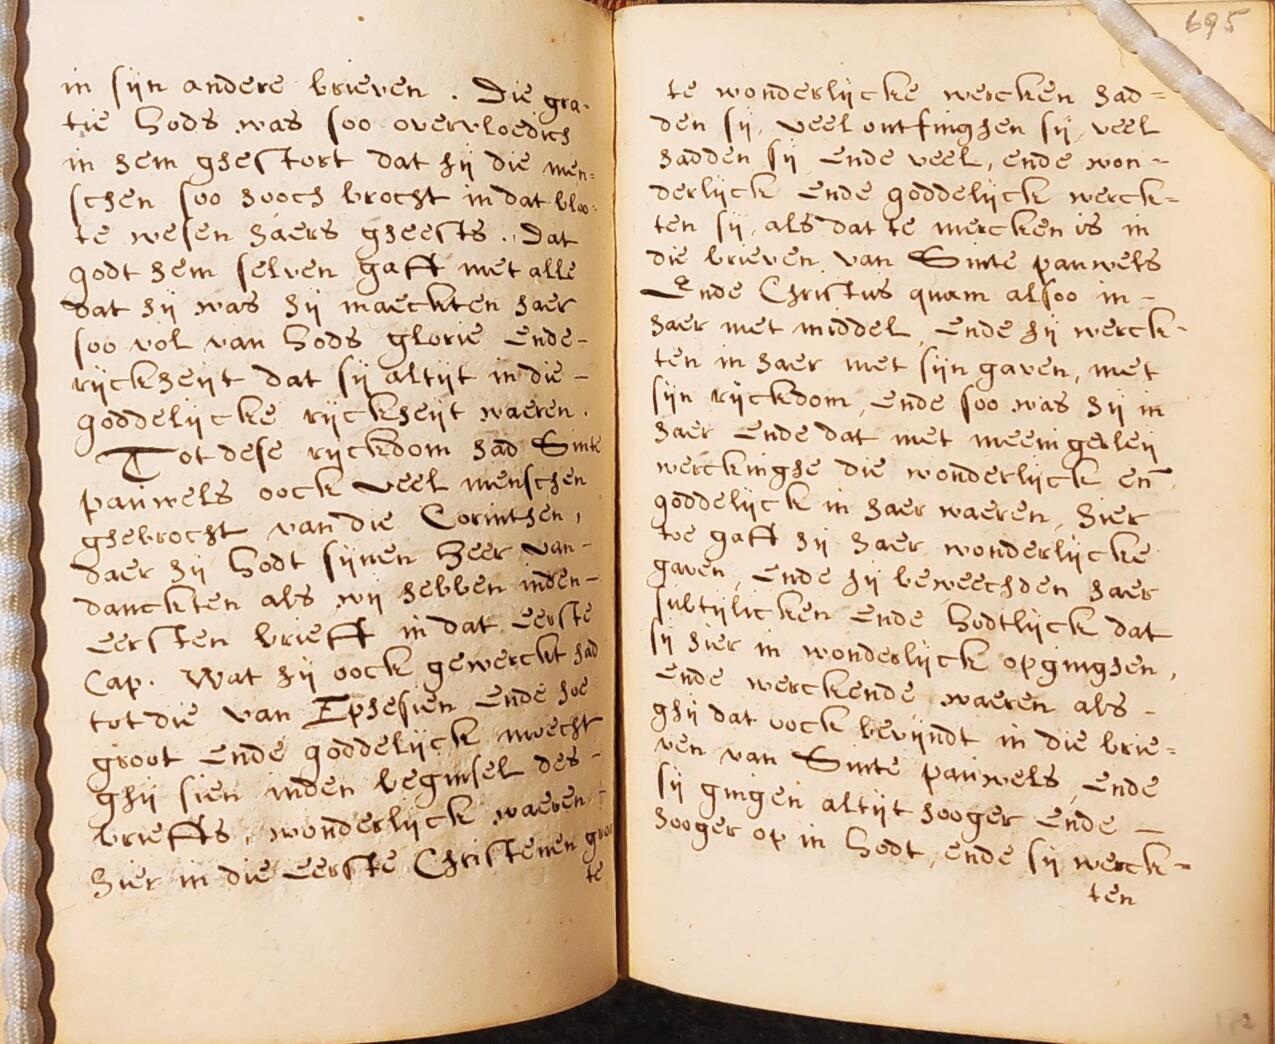 in sijn andere brieven . Die gra-
tie Gods was soo overvloedich
in hem ghestort dat hij die men=
schen soo hooch brocht in dat bloo=
te wesen haers gheests . Dat
godt hem selven gafft met alle
dat hij was hij maeckten haer
soo vol van Gods glorie ende-
rijckheijt dat sij altijt in die -
goddelijcke rijckheijt waeren .
Tot dese rijckdom had Sinte
pauwels oock veel menschen
ghebrocht van die Corinthen ,
daer hij Godt sijnen Heer van-
danckten als wij hebben inden-
eersten brieff in dat eerste
Cap. Wat hij oock gewerckt had
tot die van Ephesien ende hoe
groot ende goddelijck moecht
ghij sien inden beginsel des -
brieffs , wonderlijck waeren -
hier in die eerste Christenen groo
te
695
te wonderlijcke wercken had=
den sij, veel ontfinghen sij, veel
hadden sij ende veel, ende won-
derlijck ende goddelijck werck=
ten sij, als dat te mercken is in
die brieven van Sinte pauwels
Ende Christus quam alsoo in -
haer met middel, ende hij werck-
ten in haer met sijn gaven, met
sijn rijckdom, ende soo was hij in
haer ende dat met meenigerleij
werckinghe die wonderlijck en̄
goddelijck in haer waeren, hier
toe gafft hij haer wonderlijcke
gaven, ende hij beweechden haer
subtijlicken ende Godtlijck dat
sij hier in wonderlijck opginghen,
ende werckende waeren als -
ghij dat oock bevijndt in die brie=
ven van Sinte pauwels, ende
sij gingen altijt hooger ende -
hooger op in Godt, ende sij werck=
ten
172